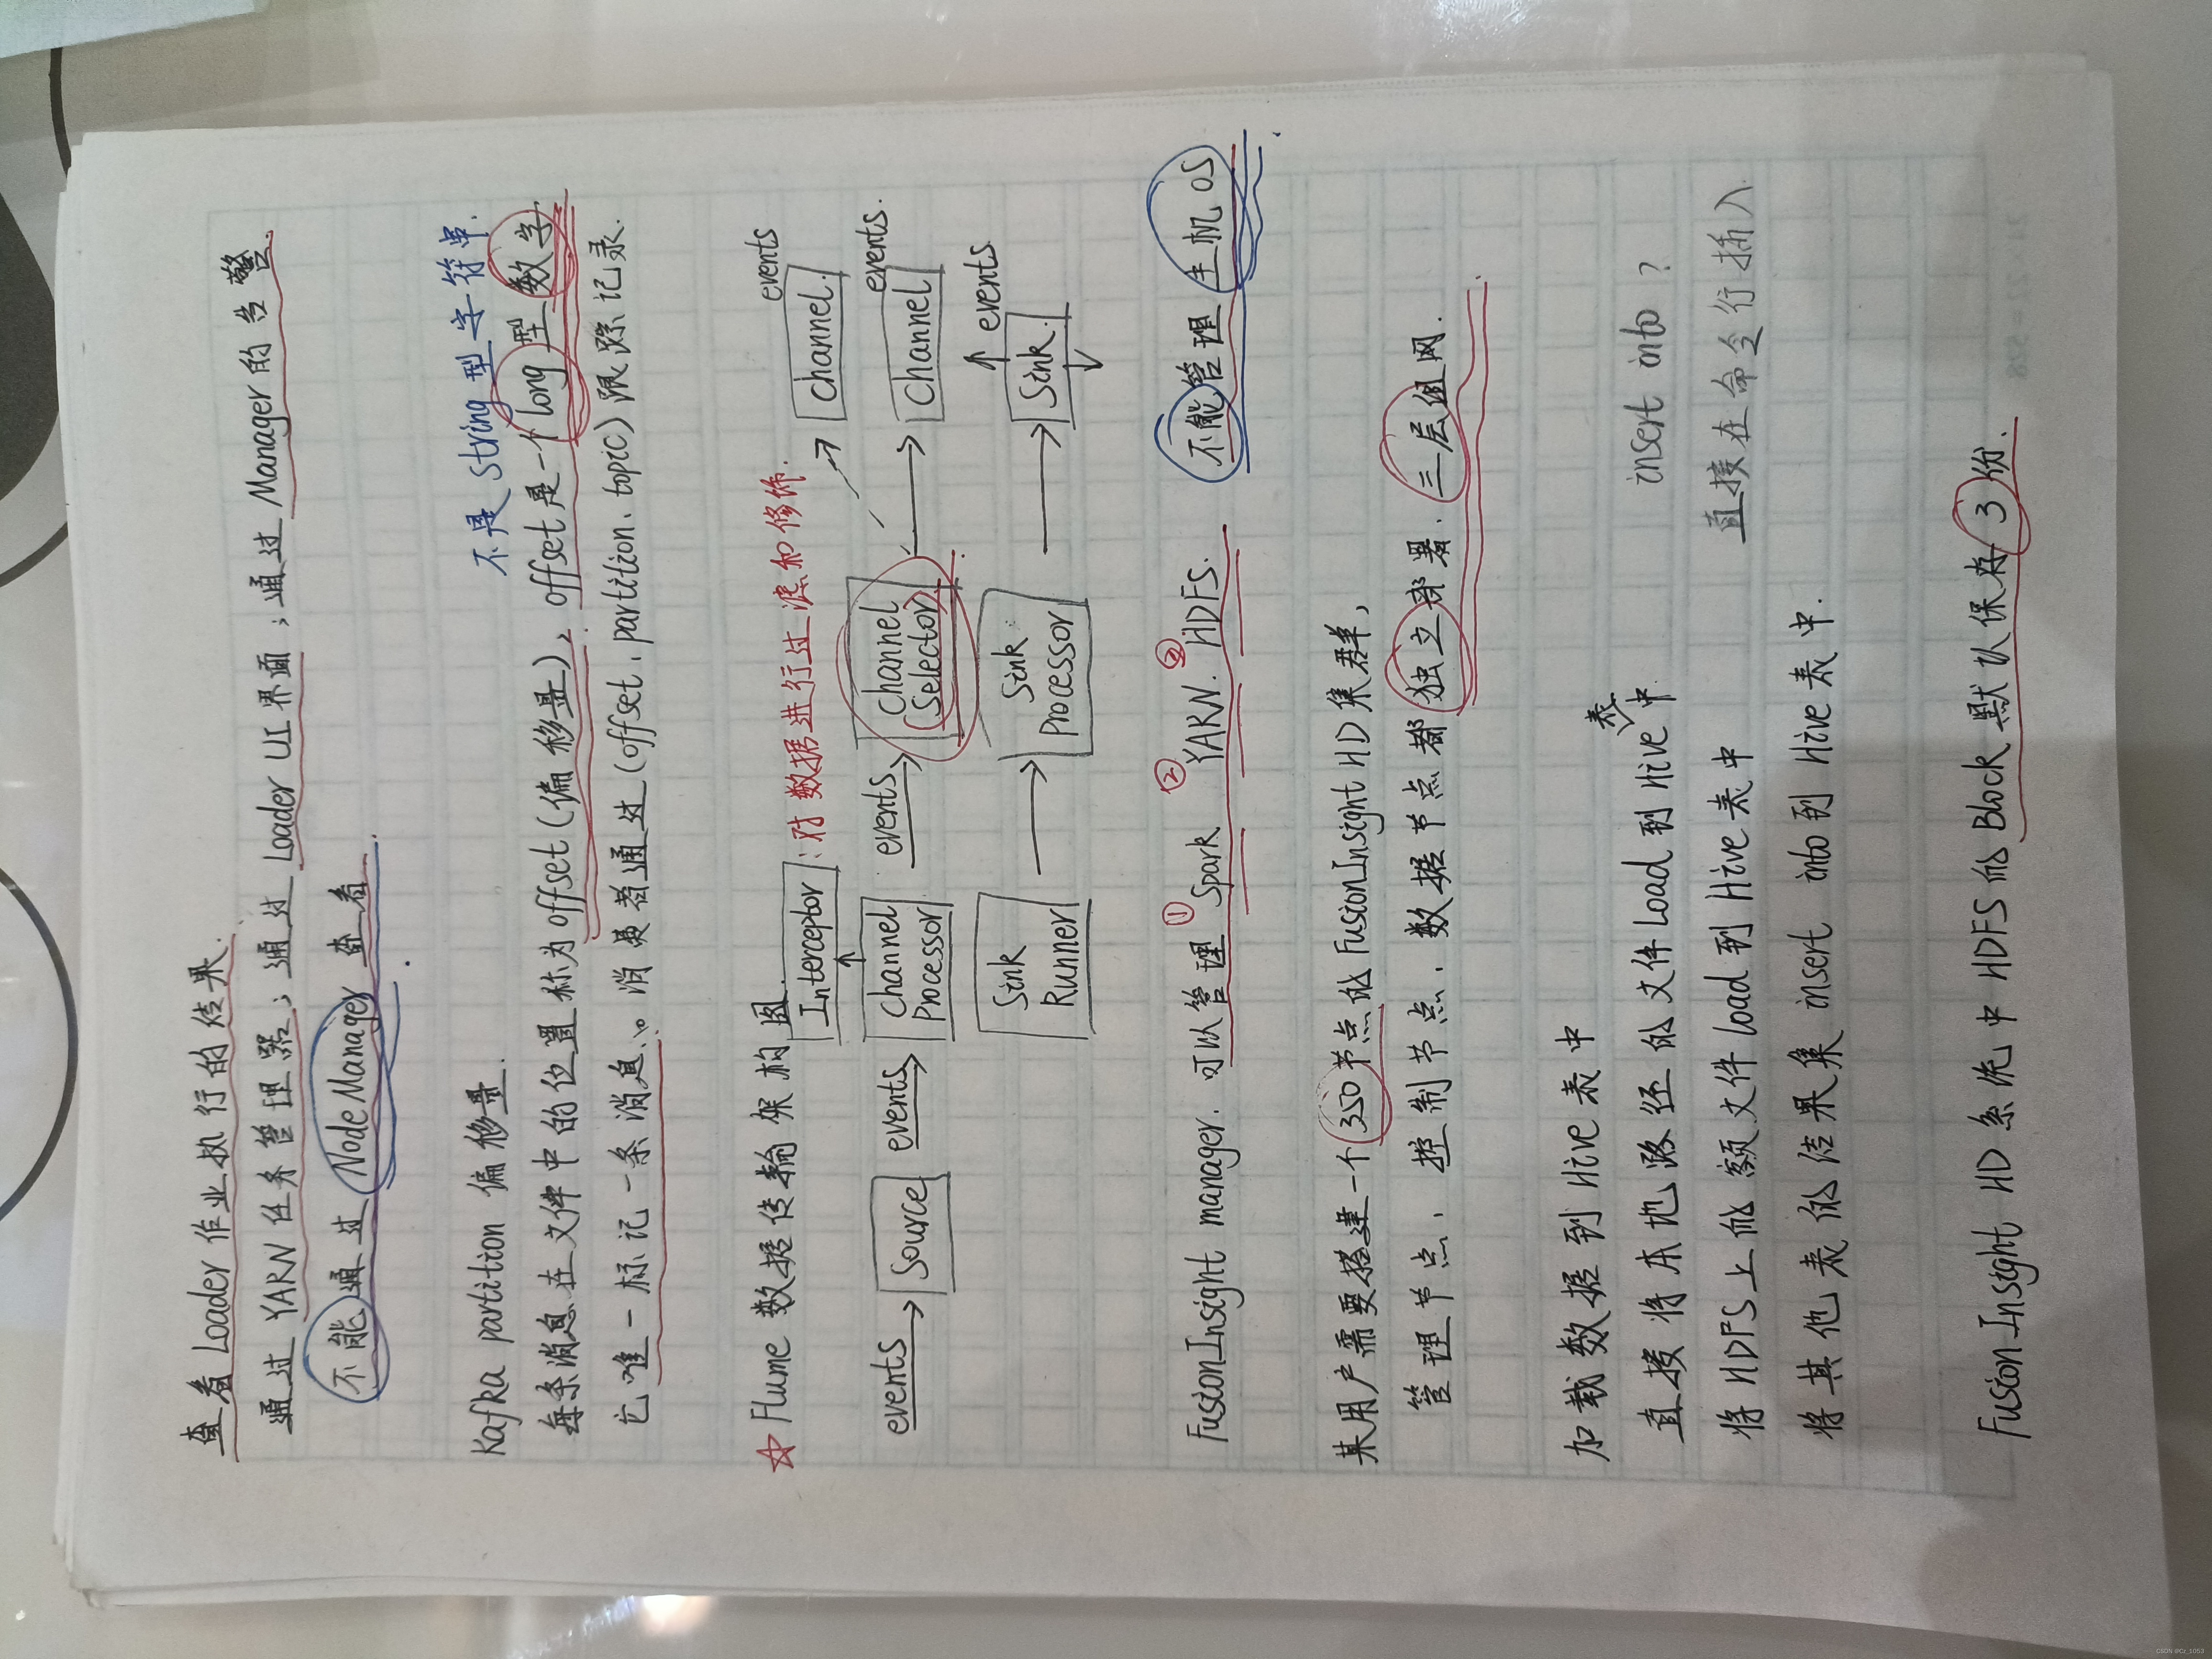 查看Loader作业执行的结果.
通过YARN任务管理器；通过Loader UI界面；通过Manager的告警.
不能通过NodeManager查看.
不是string型字符串.
Kafka partition 偏移量.
每条消息在文件中的位置称为offset(偏移量)，offset是一个long型数字.
它唯一标记一条消息.。消费者通过(offset、partition、topic)跟踪记录.
☆ Flume 数据传输架构图.
Interceptor：对数据进行过滤和修饰.
events
Channel
events Source events Channel Processor events Channel Selector Channel events.
Sink Runner Sink Processor Sink events
FusionInsight manager. 可以管理 ①Spark ②YARN. ③HDFS. 不能管理主机OS.
某用户需要搭建一个350节点的FusionInsight HD集群，
管理节点、控制节点、数据节点都独立部署.三层组网.
加载数据到Hive表中
直接将本地路径的文件Load到Hive表中. insert into ?
将HDFS上的额文件load到Hive表中 直接在命令行插入
将其他表的结果集 insert into到Hive表中.
FusionInsight HD系统中HDFS的Block默认保存3份.
CSDN @Cz_1053